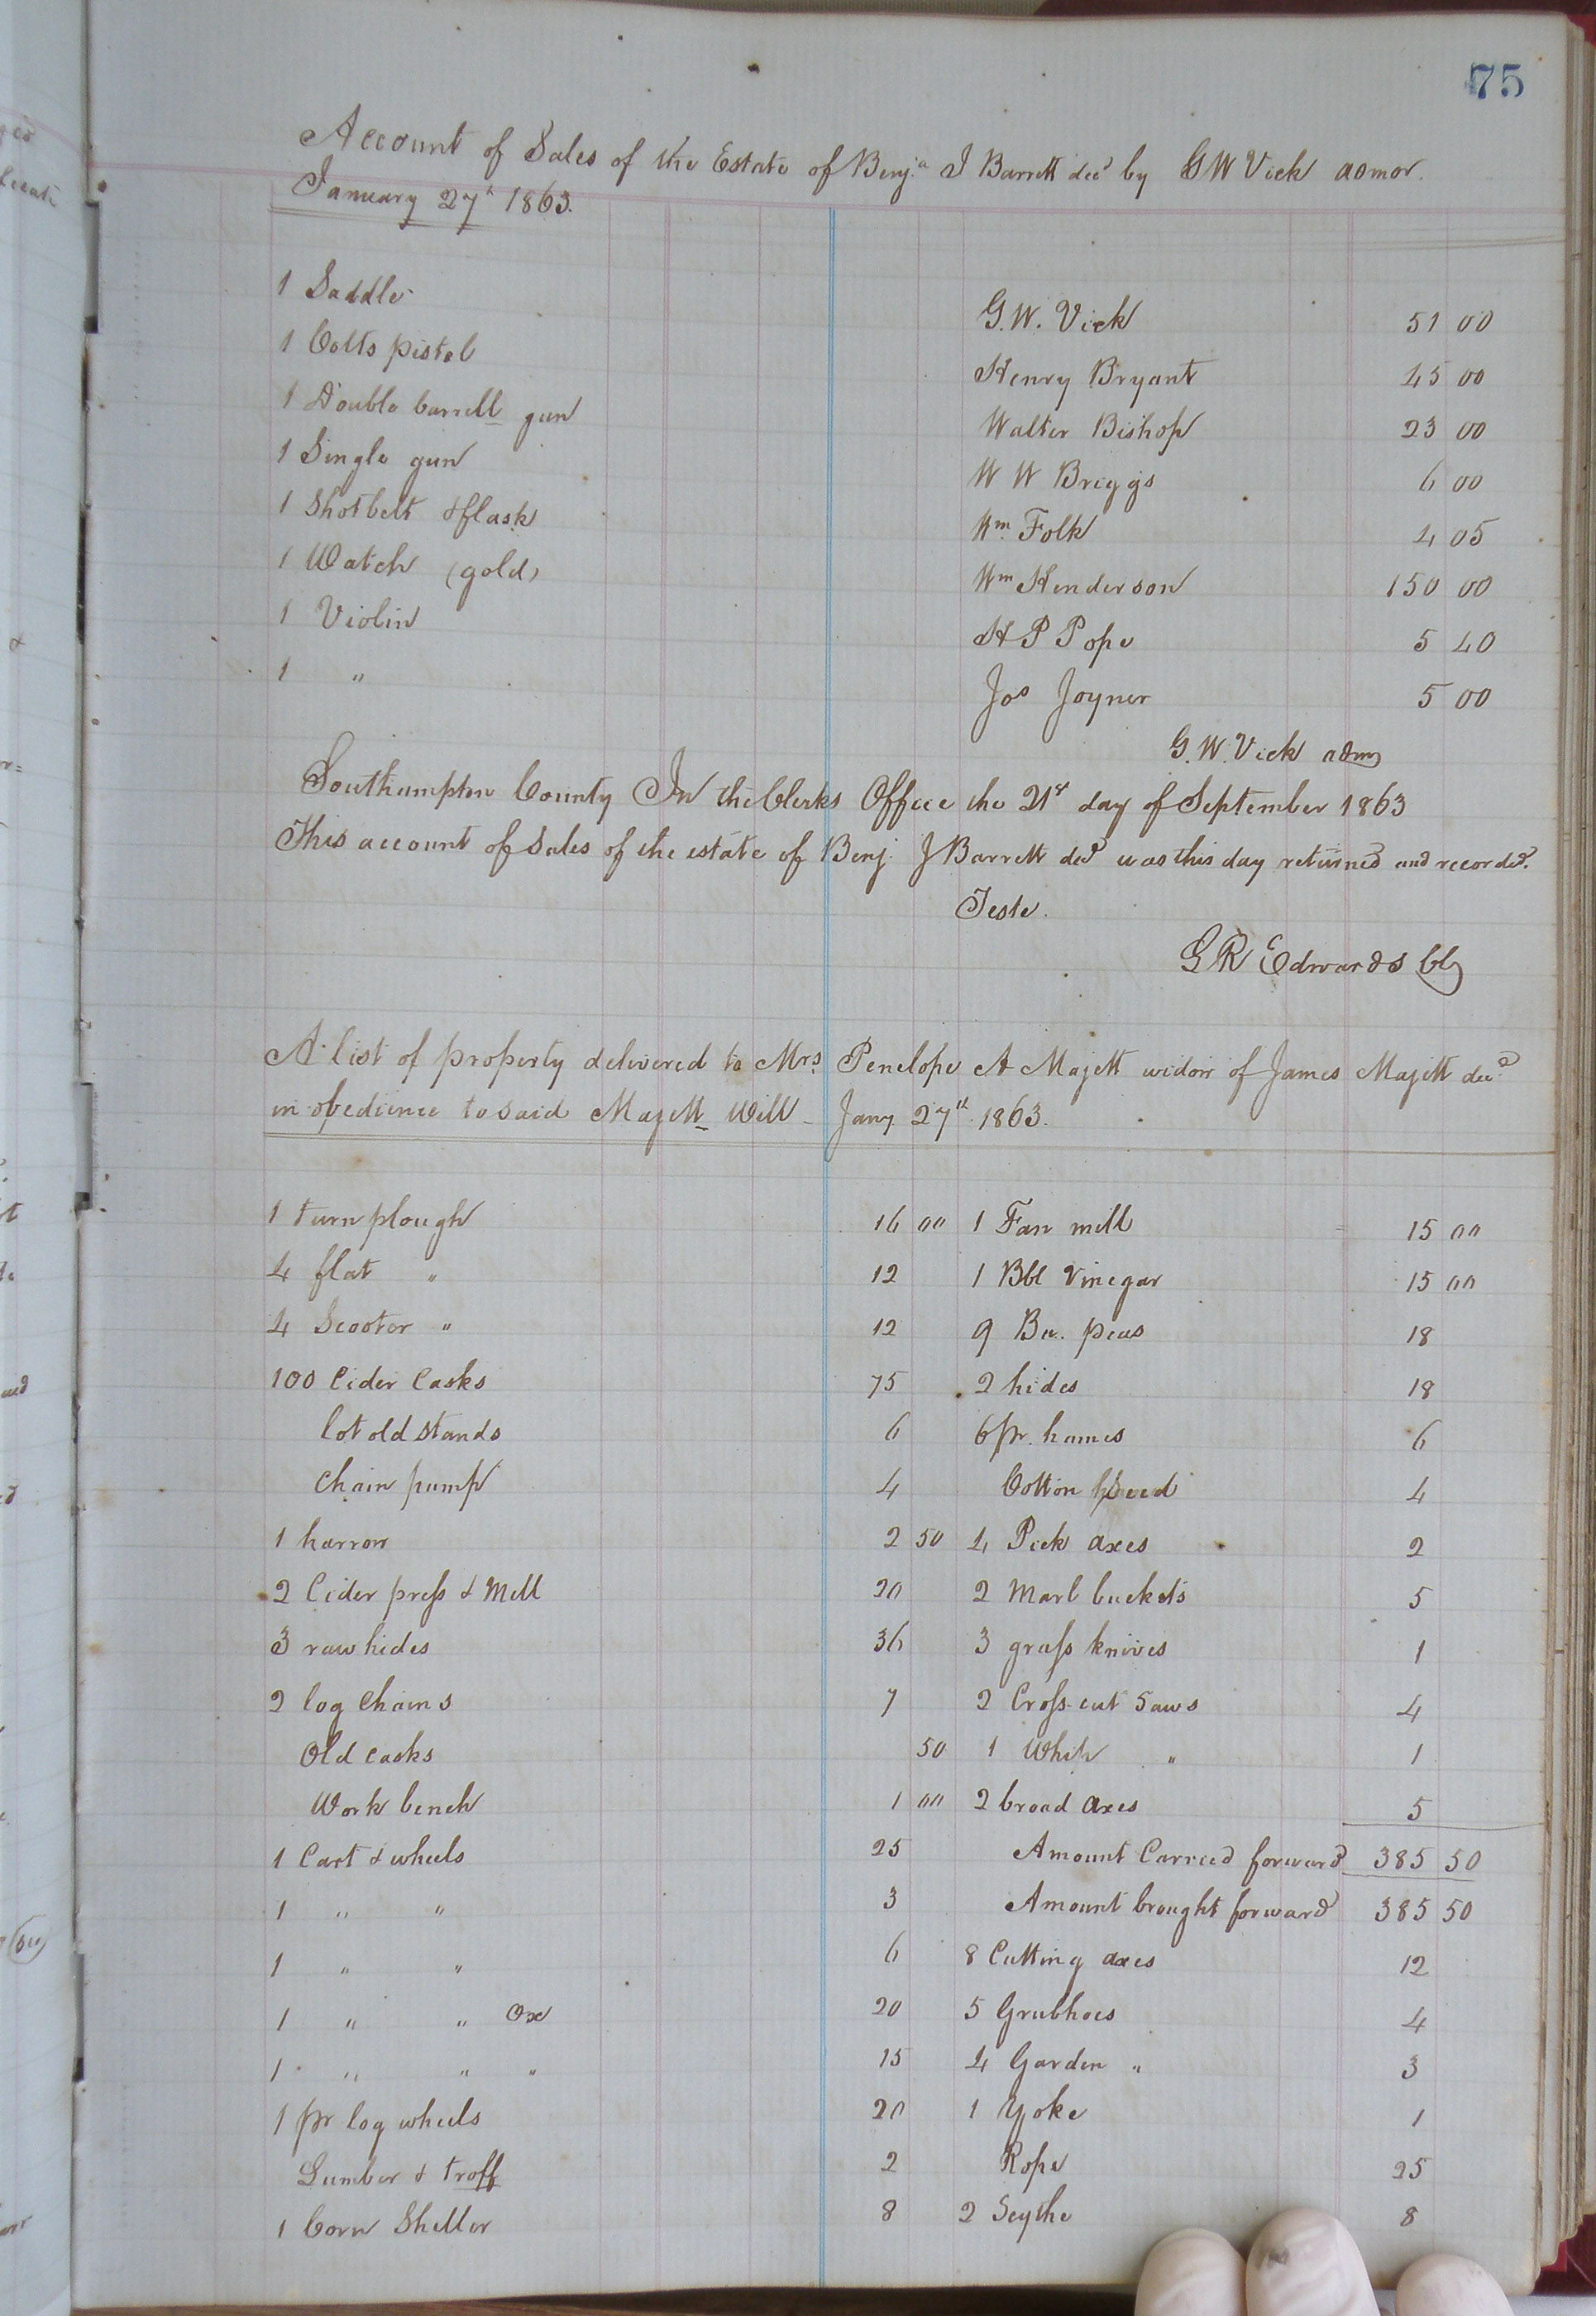 75
Account of Sales of the Estate of Benja J Barrett decd by G W Vick admor.
January 27th 1863.
1 Saddle G. W. Vick 51 00
1 Colts pistol Henry Bryant 45 00
1 Double barrell gun Walter Bishop 23 00
1 Single gun W W Briggs 6 00
1 Shot belt & flask Wm Folk 4 05
1 Watch (gold) Wm Henderson 150 00
1 Violin H P Pope 5 40
1 " Jos Joyner 5 00
G. W. Vick admr
Southampton County In the Clerks Office the 21st day of September 1863
This account of Sales of the estate of Benj. J Barrett decd was this day returned and recorded.
Teste.
G R Edwards Clk
A list of property delivered to Mrs Penelope A Majett widow of James Majett decd
in obedience to said Majett Will - Jany 27th 1863.
1 turn plough 16 00 1 Fan mill 15 00
4 flat " 12 1 Bbl Vinegar 15 00
4 Scooter " 12 9 Bu. peas 18
100 Cider Casks 75 2 hides 18
lot old stands 6 6 pr. hames 6
Chain pump 4 Cotton Seed 4
1 harrow 2 50 4 Pick axes 2
2 Cider press & Mill 20 2 Marl buckets 5
3 raw hides 36 3 grass knives 1
2 log Chains 7 2 Cross-cut Saws 4
Old casks 50 1 Whip " 1
Work bench 1 00 2 broad axes 5
1 Cart & wheels 25 Amount Carried forward 385 50
1 " " 3 Amount brought forward 385 50
1 " " 6 8 Cutting axes 12
1 " " Ox 20 5 Grubhoes 4
1 " " " 15 4 Garden " 3
1 pr log wheels 20 1 Yoke 1
Lumber & troff 2 Rope 25
1 Corn Sheller 8 2 Scythe 8